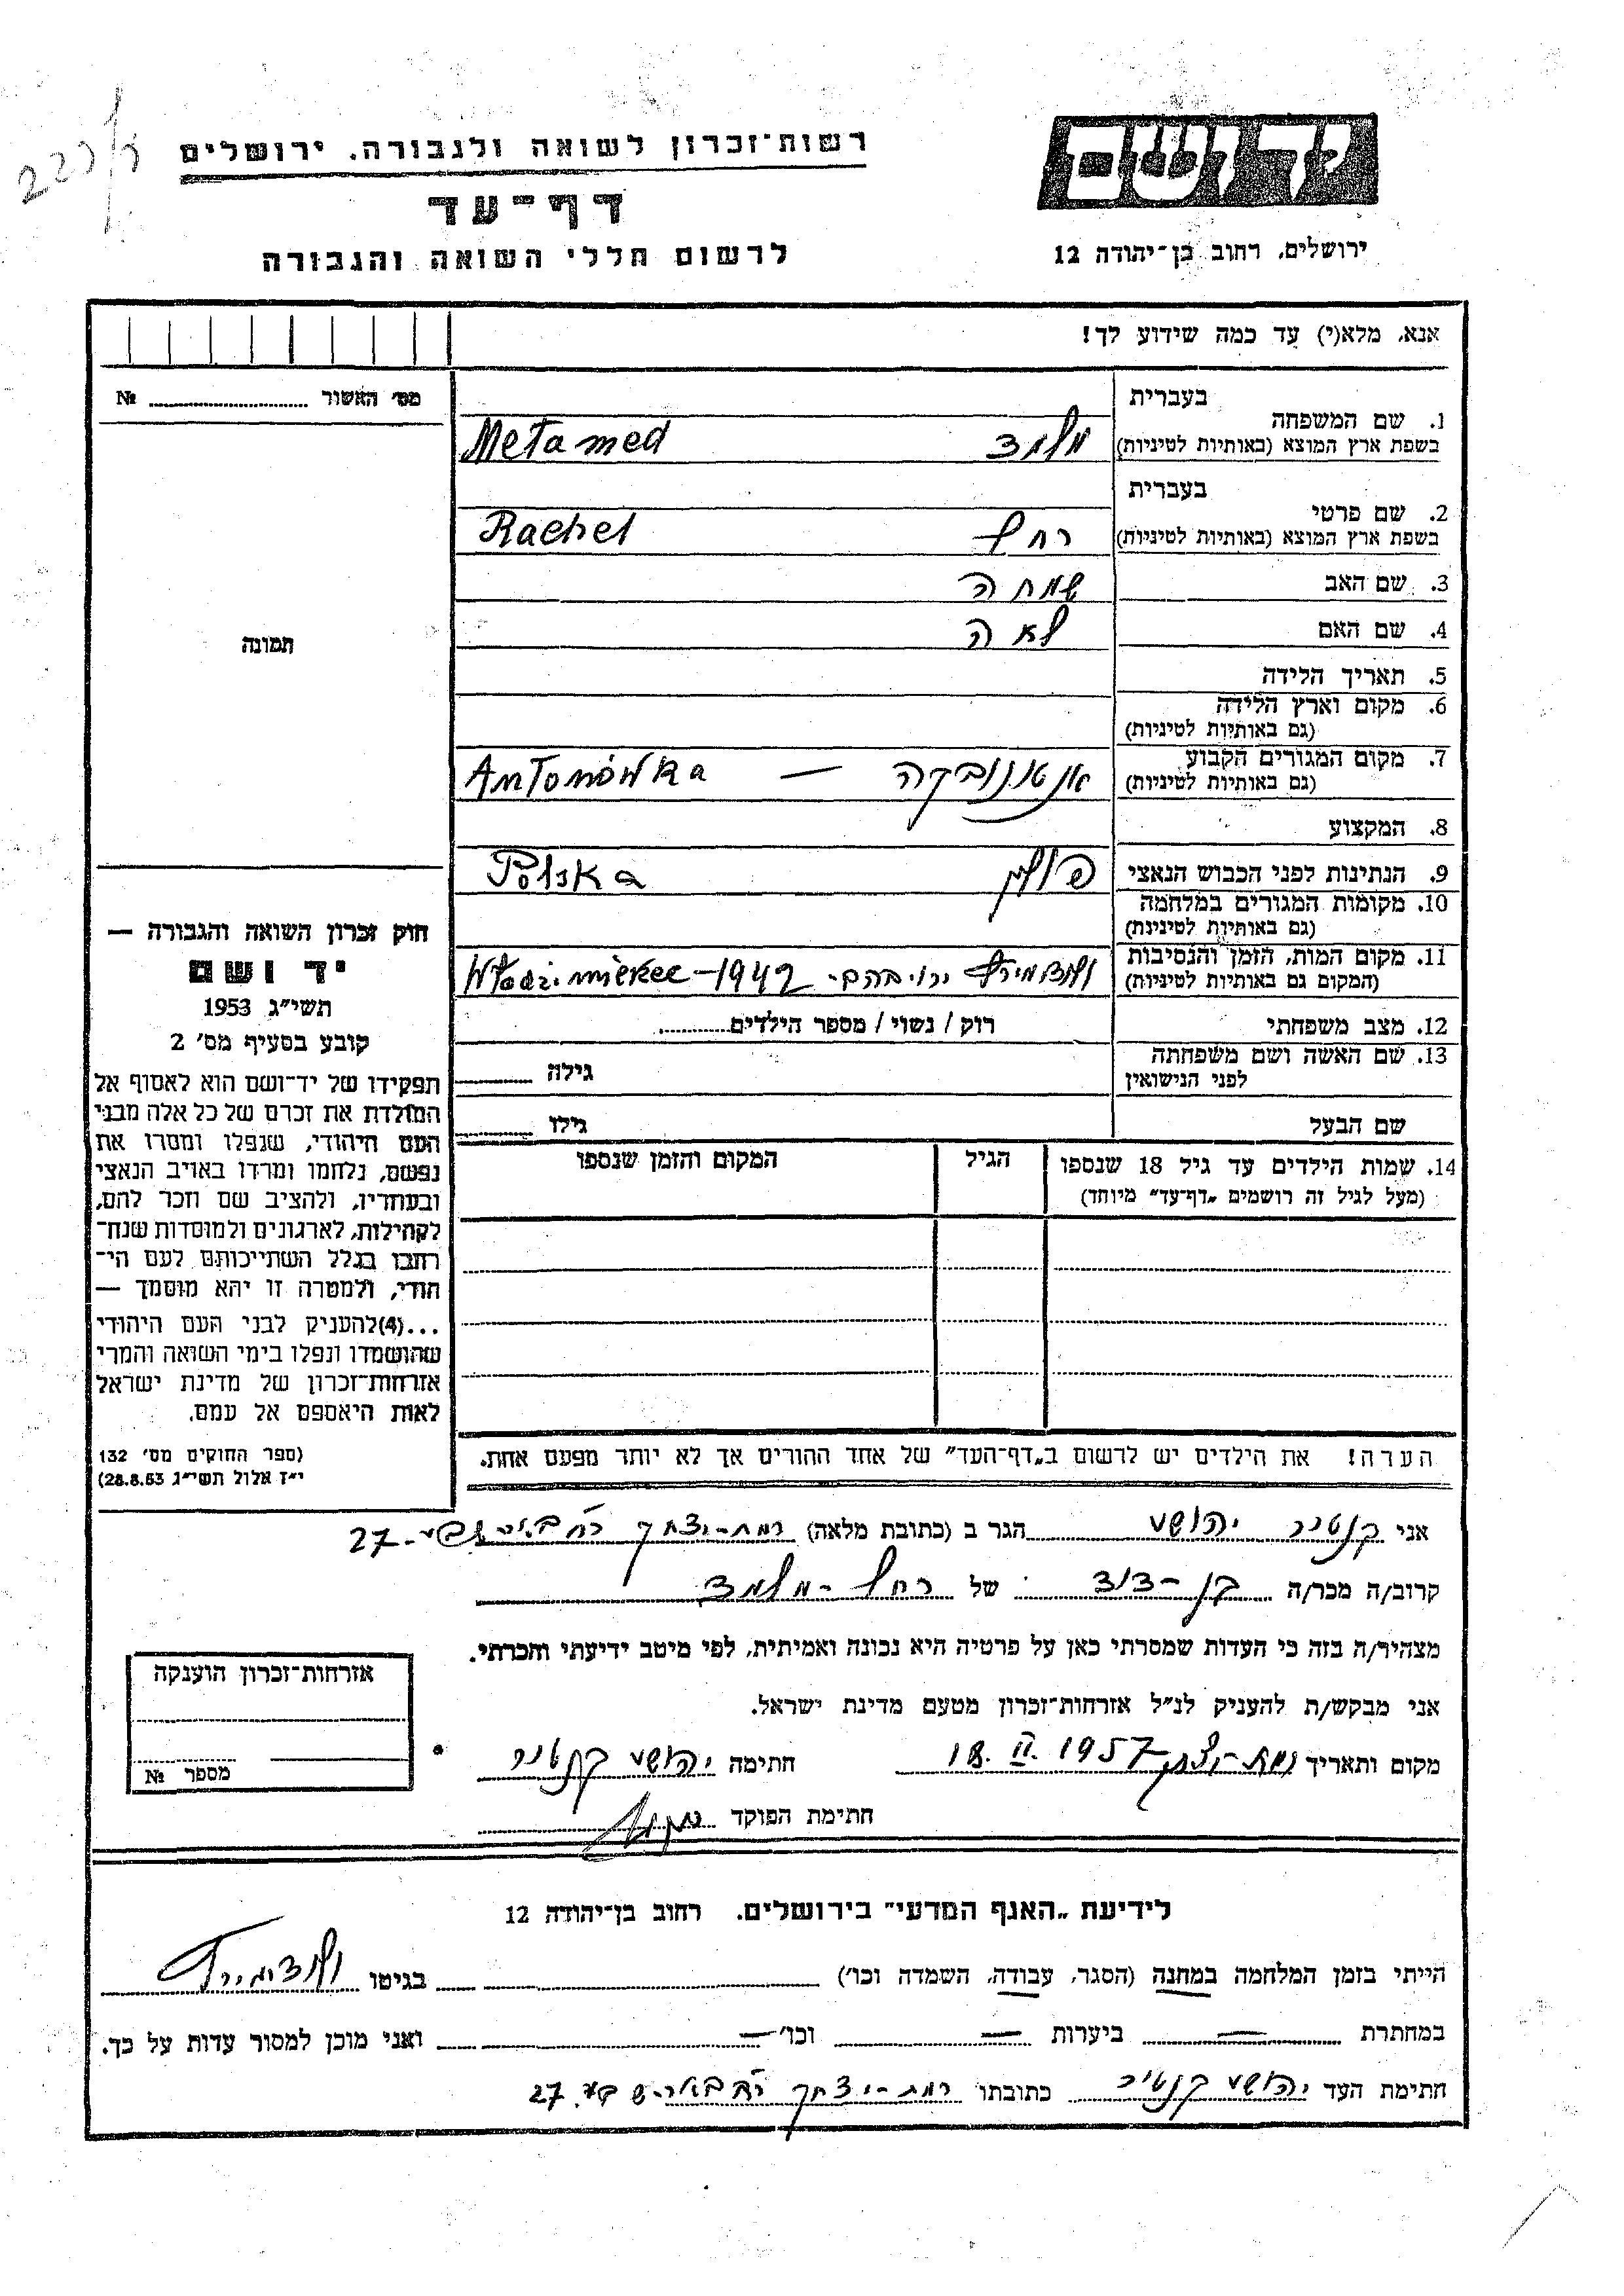 רשות־זכרון לשואה ולגבורה. ירושלים
דף־עד
לרשום חללי השואה והגבורה
יד ושם
ירושלים, רחוב בן־יהודה 12
אנא, מלא(י) עד כמה שידוע לך!
מס׳ האשור № 
בעברית
1. שם המשפחה
בשפת ארץ המוצא (באותיות לטיניות)
מלמד Metamed
בעברית
2. שם פרטי
בשפת ארץ המוצא (באותיות לטיניות)
רחל Rachel
3. שם האב שמחה
4. שם האם לאה
5. תאריך הלידה
6. מקום וארץ הלידה
(גם באותיות לטיניות)
7. מקום המגורים הקבוע
(גם באותיות לטיניות)
אנטונובקה — Antonówka
8. המקצוע
9. הנתינות לפני הכבוש הנאצי פולין Polska
10. מקומות המגורים במלחמה
(גם באותיות לטיניות)
11. מקום המות, הזמן והנסיבות
(המקום גם באותיות לטיניות)
1942
12. מצב משפחתי רוק / נשוי / מספר הילדים
13. שם האשה ושם משפחתה
לפני הנישואין
גילה
שם הבעל גילו
14. שמות הילדים עד גיל 18 שנספו הגיל המקום והזמן שנספו
(מעל לגיל זה רושמים „דף־עד״ מיוחד)
הערה! את הילדים יש לרשום ב„דף־העד״ של אחד ההורים אך לא יותר מפעם אחת.
תמונה
חוק זכרון השואה והגבורה —
יד ושם
תשי״ג 1953
קובע בסעיף מס׳ 2
תפקידו של יד־ושם הוא לאסוף אל
המולדת את זכרם של כל אלה מבני
העם היהודי, שנפלו ומסרו את
נפשם, נלחמו ומרדו באויב הנאצי
ובעוזריו, ולהציב שם וזכר להם,
לקהילות, לארגונים ולמוסדות שנח־
רבו בגלל השתייכותם לעם הי־
הודי, ולמטרה זו יהא מוסמך —
...(4)להעניק לבני העם היהודי
שהושמדו ונפלו בימי השואה והמרי
אזרחות־זכרון של מדינת ישראל
לאות היאספם אל עמם.
(ספר החוקים מס׳ 132
י״ז אלול תשי״ג 28.8.53)
אני קנטור יהושע הגר ב (כתובת מלאה) רמת-יצחק רח׳ באר-שבע-27
קרוב/ה מכר/ה בן-דוד של רחל-מלמד
מצהיר/ה בזה כי העדות שמסרתי כאן על פרטיה היא נכונה ואמיתית, לפי מיטב ידיעתי והכרתי.
אני מבקש/ת להעניק לנ״ל אזרחות־זכרון מטעם מדינת ישראל.
מקום ותאריך רמת-יצחק 18. II. 1957 חתימה יהושע קנטור
חתימת הפוקד
אזרחות־זכרון הוענקה
מספר №
לידיעת „האגף המדעי״ בירושלים. רחוב בן־יהודה 12
הייתי בזמן המלחמה במחנה (הסגר, עבודה, השמדה וכו׳) בגיטו
במחתרת — ביערות — וכו׳ — ואני מוכן למסור עדות על כך.
חתימת העד יהושע קנטור כתובתו רמת-יצחק רח׳ באר-שבע 27